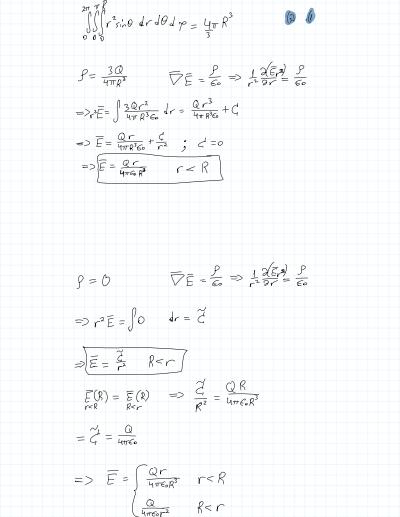 ∫₀^{2π}∫₀^{π}∫₀^{R} r² sinθ dr dθ dφ = 4π/3 R³
ρ = 3Q/4πR³   ∇E̅ = ρ/ε₀ ⇒ 1/r² ∂(E̅r²)/∂r = ρ/ε₀
⇒ r²E̅ = ∫ 3Qr²/4πR³ε₀ dr = Qr³/4πR³ε₀ + C
⇒ E̅ = Qr/4πR³ε₀ + C/r² ; C=0
⇒ E̅ = Qr/4πε₀R³   r < R
ρ = 0   ∇E̅ = ρ/ε₀ ⇒ 1/r² ∂(E̅r²)/∂r = ρ/ε₀
⇒ r²E̅ = ∫0 dr = C̃
⇒ E̅ = C̃/r²   R<r
E̅(R) r<R = E̅(R) R<r ⇒ C̃/R² = QR/4πε₀R³
= C̃ = Q/4πε₀
⇒ E̅ = { Qr/4πε₀R³   r<R
Q/4πε₀r²   R<r